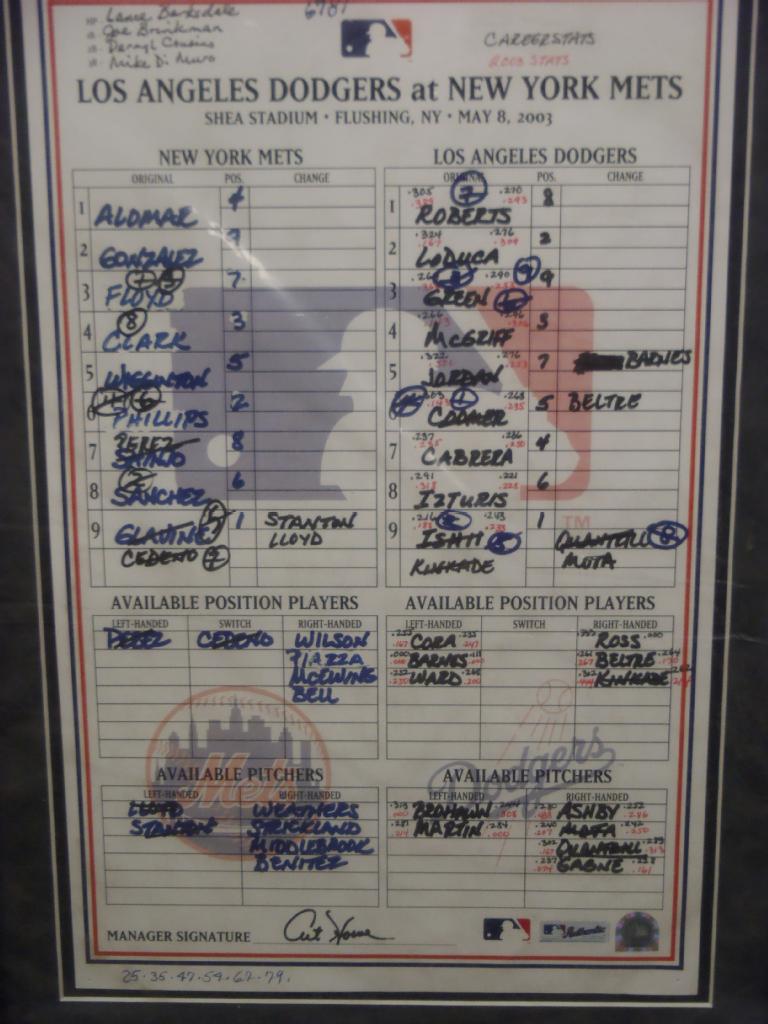 HP- Lance Barksdale
1B- Joe Brinkman
2B- Darryl Cousins
3B- Mike Di Muro
6781
CAREER STATS
2003 STATS
LOS ANGELES DODGERS at NEW YORK METS
SHEA STADIUM • FLUSHING, NY • MAY 8, 2003
NEW YORK METS
ORIGINAL POS. CHANGE
1 ALOMAR 4
2 GONZALEZ 9
3 FLOYD 7
4 CLARK 3
5 WIGGINTON 5
6 PHILLIPS 2
7 PEREZ SHINJO 8
8 SANCHEZ 6
9 GLAVINE 1 STANTON
CEDENO LLOYD
LOS ANGELES DODGERS
ORIGINAL POS. CHANGE
1 ROBERTS 8
2 LODUCA 2
3 GREEN 9
4 McGRIFF 3
5 JORDAN 7 BARNES
COOMER 5 BELTRE
7 CABRERA 4
8 IZTURIS 6
9 ISHII 1 QUANTRILL
KINKADE MOTA
AVAILABLE POSITION PLAYERS
LEFT-HANDED SWITCH RIGHT-HANDED
PEREZ CEDENO WILSON
PIAZZA
McEWING
BELL
AVAILABLE POSITION PLAYERS
LEFT-HANDED SWITCH RIGHT-HANDED
CORA ROSS
BARNES BELTRE
WARD KINKADE
Mets
Dodgers
AVAILABLE PITCHERS
LEFT-HANDED RIGHT-HANDED
LLOYD WEATHERS
STANTON STRICKLAND
MIDDLEBROOK
BENITEZ
AVAILABLE PITCHERS
LEFT-HANDED RIGHT-HANDED
BROHAWN ASHBY
MARTIN MOTA
QUANTRILL
GAGNE
TM
MANAGER SIGNATURE Art Howe
Authentic
25-35-47-54-62-79.